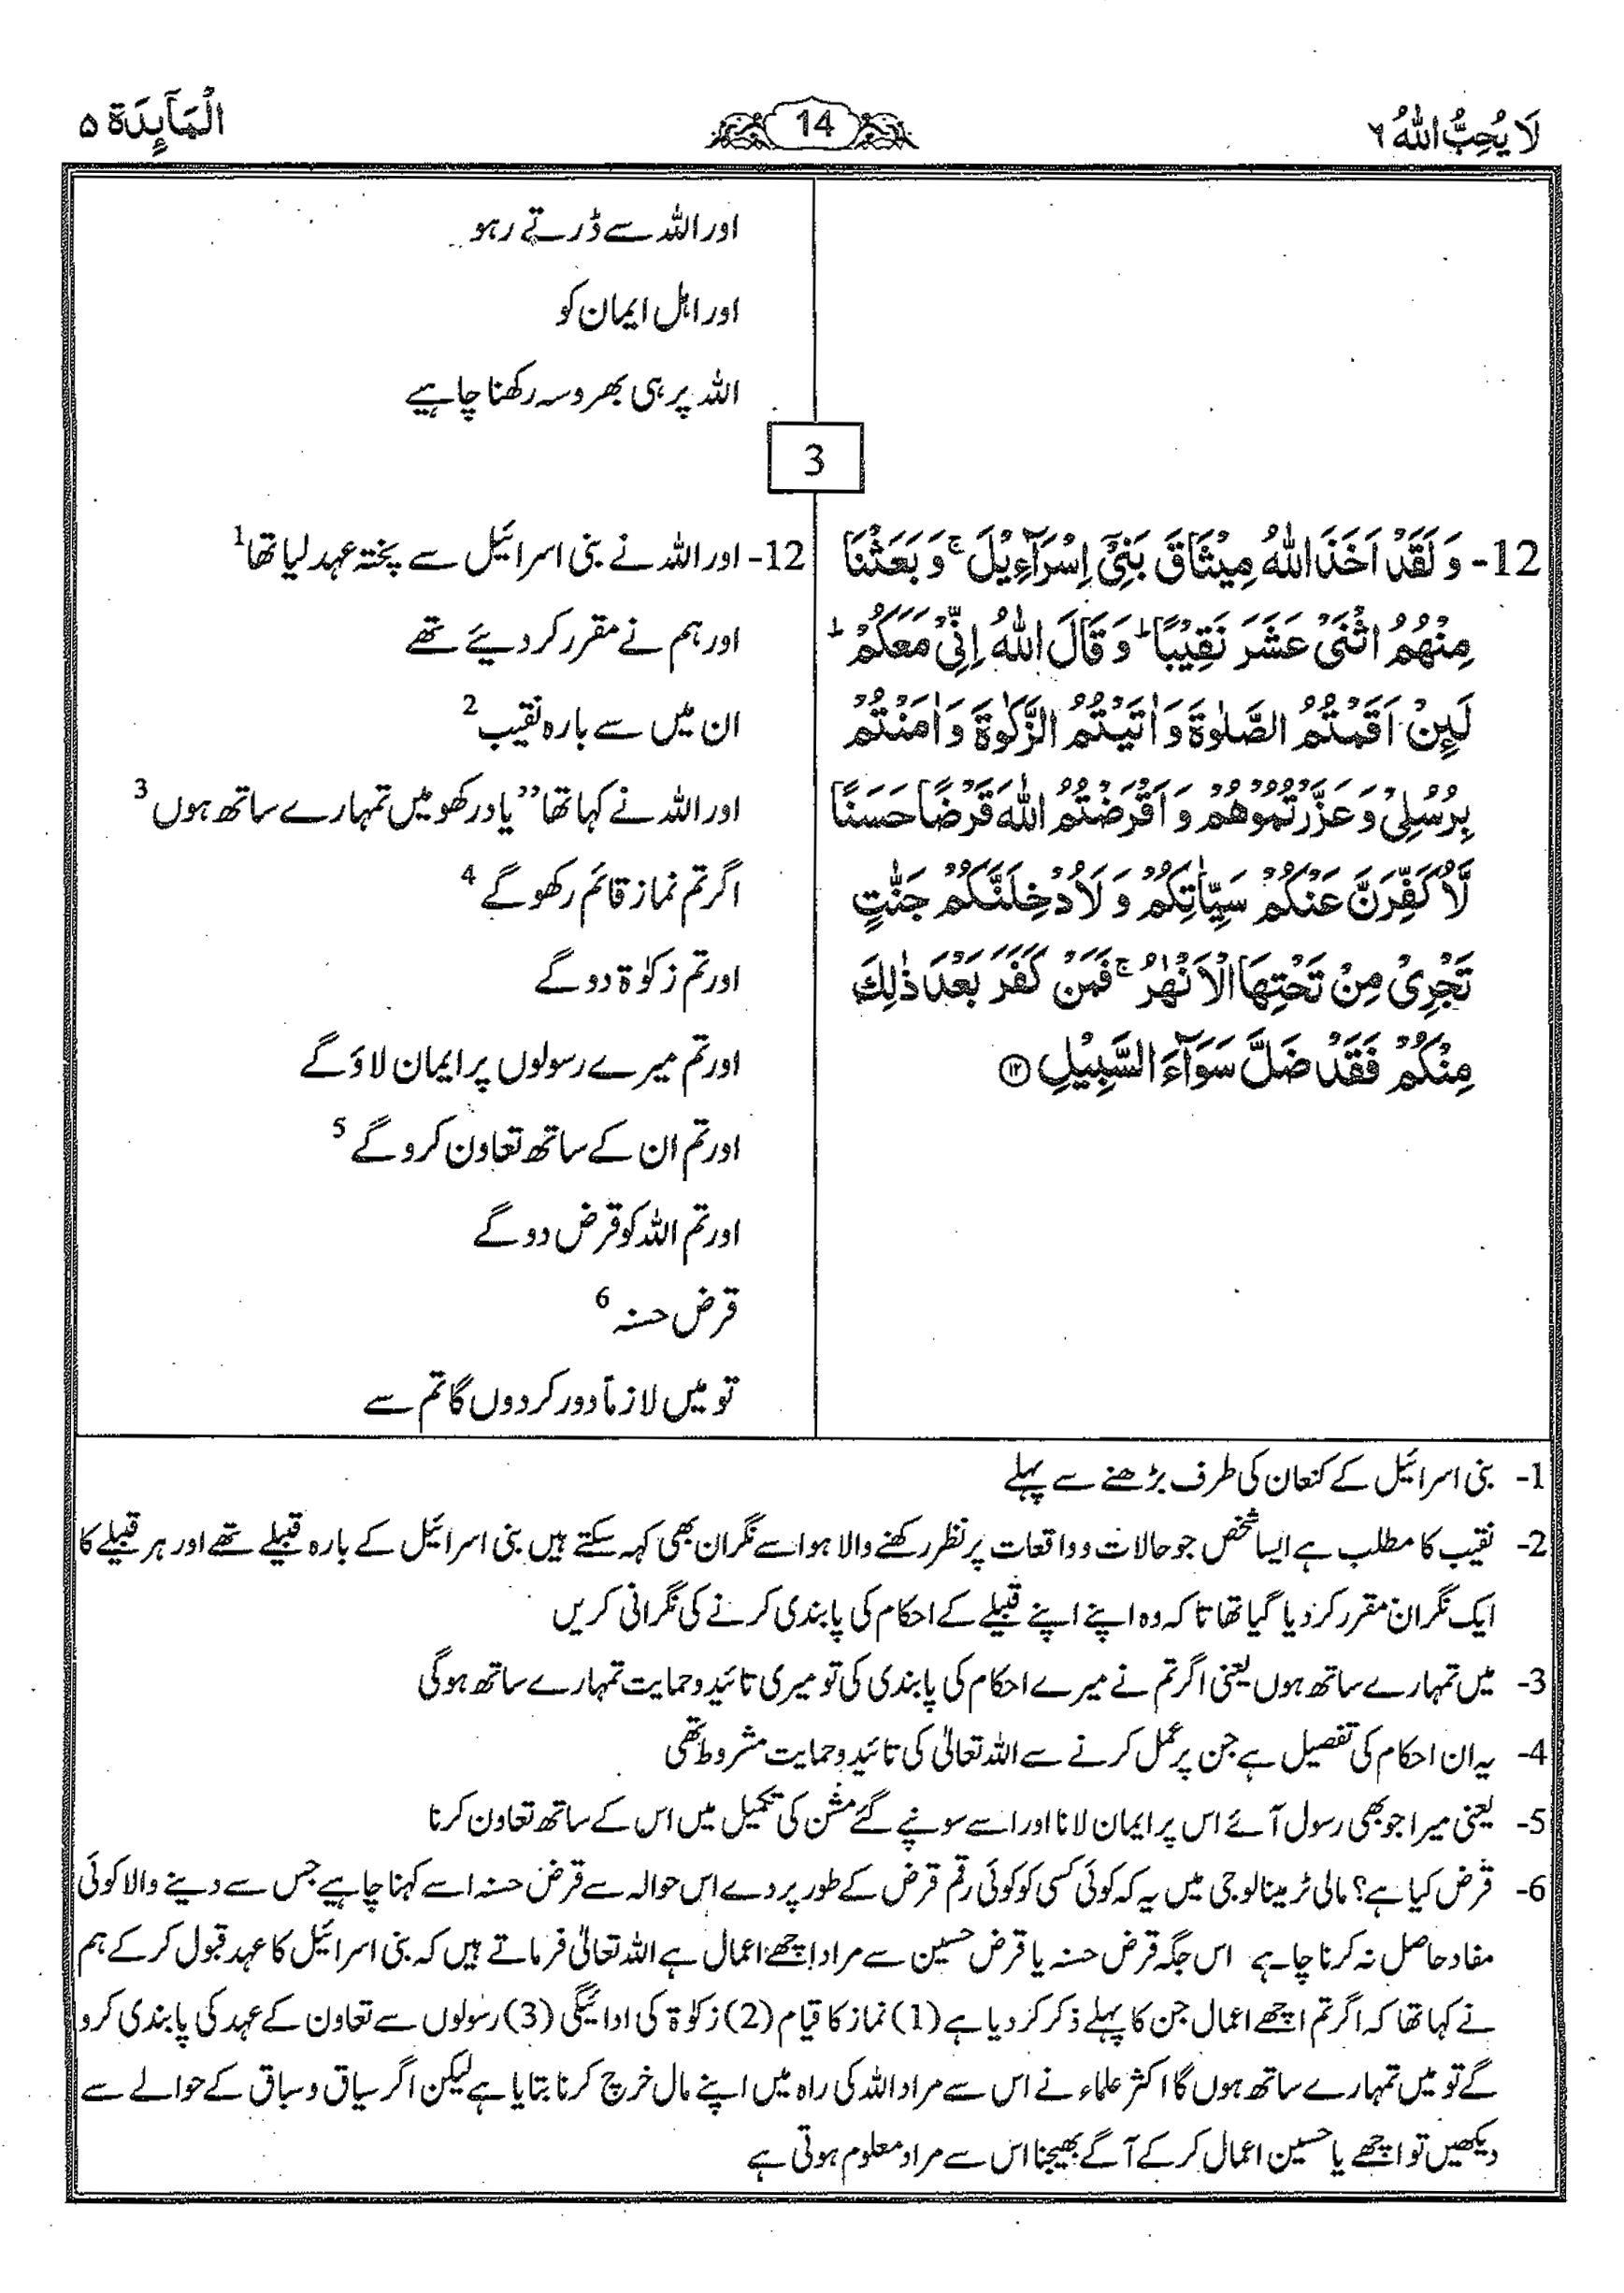 لَا يُحِبُّ اللّٰهُ ٦
14
الْمَآئِدَة ۵
اور اللہ سے ڈرتے رہو
اور اہل ایمان کو
اللہ پر ہی بھروسہ رکھنا چاہیے
3
12- وَ لَقَدْ اَخَذَ اللّٰهُ مِيْثَاقَ بَنِيْٓ اِسْرَآءِيْلَ ۚ وَ بَعَثْنَا
مِنْهُمُ اثْنَيْ عَشَرَ نَقِيْبًا ؕ وَ قَالَ اللّٰهُ اِنِّيْ مَعَكُمْ ؕ
لَىِٕنْ اَقَمْتُمُ الصَّلٰوةَ وَ اٰتَيْتُمُ الزَّكٰوةَ وَ اٰمَنْتُمْ
بِرُسُلِيْ وَ عَزَّرْتُمُوْهُمْ وَ اَقْرَضْتُمُ اللّٰهَ قَرْضًا حَسَنًا
لَّاُكَفِّرَنَّ عَنْكُمْ سَيِّاٰتِكُمْ وَ لَاُدْخِلَنَّكُمْ جَنّٰتٍ
تَجْرِيْ مِنْ تَحْتِهَا الْاَنْهٰرُ ۚ فَمَنْ كَفَرَ بَعْدَ ذٰلِكَ
مِنْكُمْ فَقَدْ ضَلَّ سَوَآءَ السَّبِيْلِ ۝۱۲
12- اور اللہ نے بنی اسرائیل سے پختہ عہد لیا تھا 1
اور ہم نے مقرر کر دیئے تھے
ان میں سے بارہ نقیب 2
اور اللہ نے کہا تھا ”یاد رکھو میں تمہارے ساتھ ہوں 3
اگر تم نماز قائم رکھو گے 4
اور تم زکوٰۃ دو گے
اور تم میرے رسولوں پر ایمان لاؤ گے
اور تم ان کے ساتھ تعاون کرو گے 5
اور تم اللہ کو قرض دو گے
قرض حسنہ 6
تو میں لازماً دور کر دوں گا تم سے
1- بنی اسرائیل کے کنعان کی طرف بڑھنے سے پہلے
2- نقیب کا مطلب ہے ایسا شخص جو حالات و واقعات پر نظر رکھنے والا ہو اسے نگران بھی کہہ سکتے ہیں بنی اسرائیل کے بارہ قبیلے تھے اور ہر قبیلے کا
ایک نگران مقرر کر دیا گیا تھا تا کہ وہ اپنے اپنے قبیلے کے احکام کی پابندی کرنے کی نگرانی کریں
3- میں تمہارے ساتھ ہوں یعنی اگر تم نے میرے احکام کی پابندی کی تو میری تائید و حمایت تمہارے ساتھ ہوگی
4- یہ ان احکام کی تفصیل ہے جن پر عمل کرنے سے اللہ تعالیٰ کی تائید و حمایت مشروط تھی
5- یعنی میرا جو بھی رسول آئے اس پر ایمان لانا اور اسے سونپے گئے مشن کی تکمیل میں اس کے ساتھ تعاون کرنا
6- قرض کیا ہے؟ مالی ٹرمینالوجی میں یہ کہ کوئی کسی کو کوئی رقم قرض کے طور پر دے اس حوالہ سے قرض حسنہ اسے کہنا چاہیے جس سے دینے والا کوئی
مفاد حاصل نہ کرنا چاہے اس جگہ قرض حسنہ یا قرض حسین سے مراد اچھے اعمال ہے اللہ تعالیٰ فرماتے ہیں کہ بنی اسرائیل کا عہد قبول کر کے ہم
نے کہا تھا کہ اگر تم اچھے اعمال جن کا پہلے ذکر کر دیا ہے (1) نماز کا قیام (2) زکوٰۃ کی ادائیگی (3) رسولوں سے تعاون کے عہد کی پابندی کرو
گے تو میں تمہارے ساتھ ہوں گا اکثر علماء نے اس سے مراد اللہ کی راہ میں اپنے مال خرچ کرنا بتایا ہے لیکن اگر سیاق و سباق کے حوالے سے
دیکھیں تو اچھے یا حسین اعمال کر کے آگے بھیجنا اس سے مراد معلوم ہوتی ہے